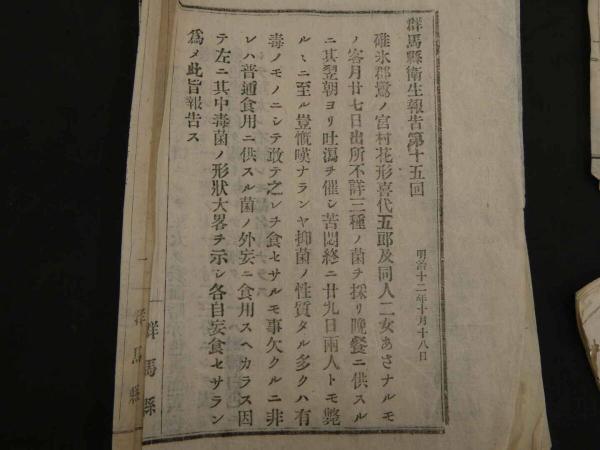 群馬縣衛生報告第十五回
明治十二年十月十八日
碓氷郡鷺ノ宮村花形喜代五郎及同人二女あさナルモ
ノ客月廿七日出所不詳三種ノ菌ヲ採リ晩餐ニ供スル
ニ其翌朝ヨリ吐瀉ヲ催シ苦悶終ニ廿九日兩人トモ斃
ルヽニ至ル豈慨嘆ナランヤ抑菌ノ性質タル多クハ有
毒ノモノニシテ敢テ之レチ食セサルモ事欠クルニ非
レハ普通食用ニ供スル菌ノ外妄ニ食用スヘカラス因
テ左ニ其中毒菌ノ形狀大畧ヲ示シ各自妄食セサラン
爲メ此旨報告ス
群馬縣
群馬縣